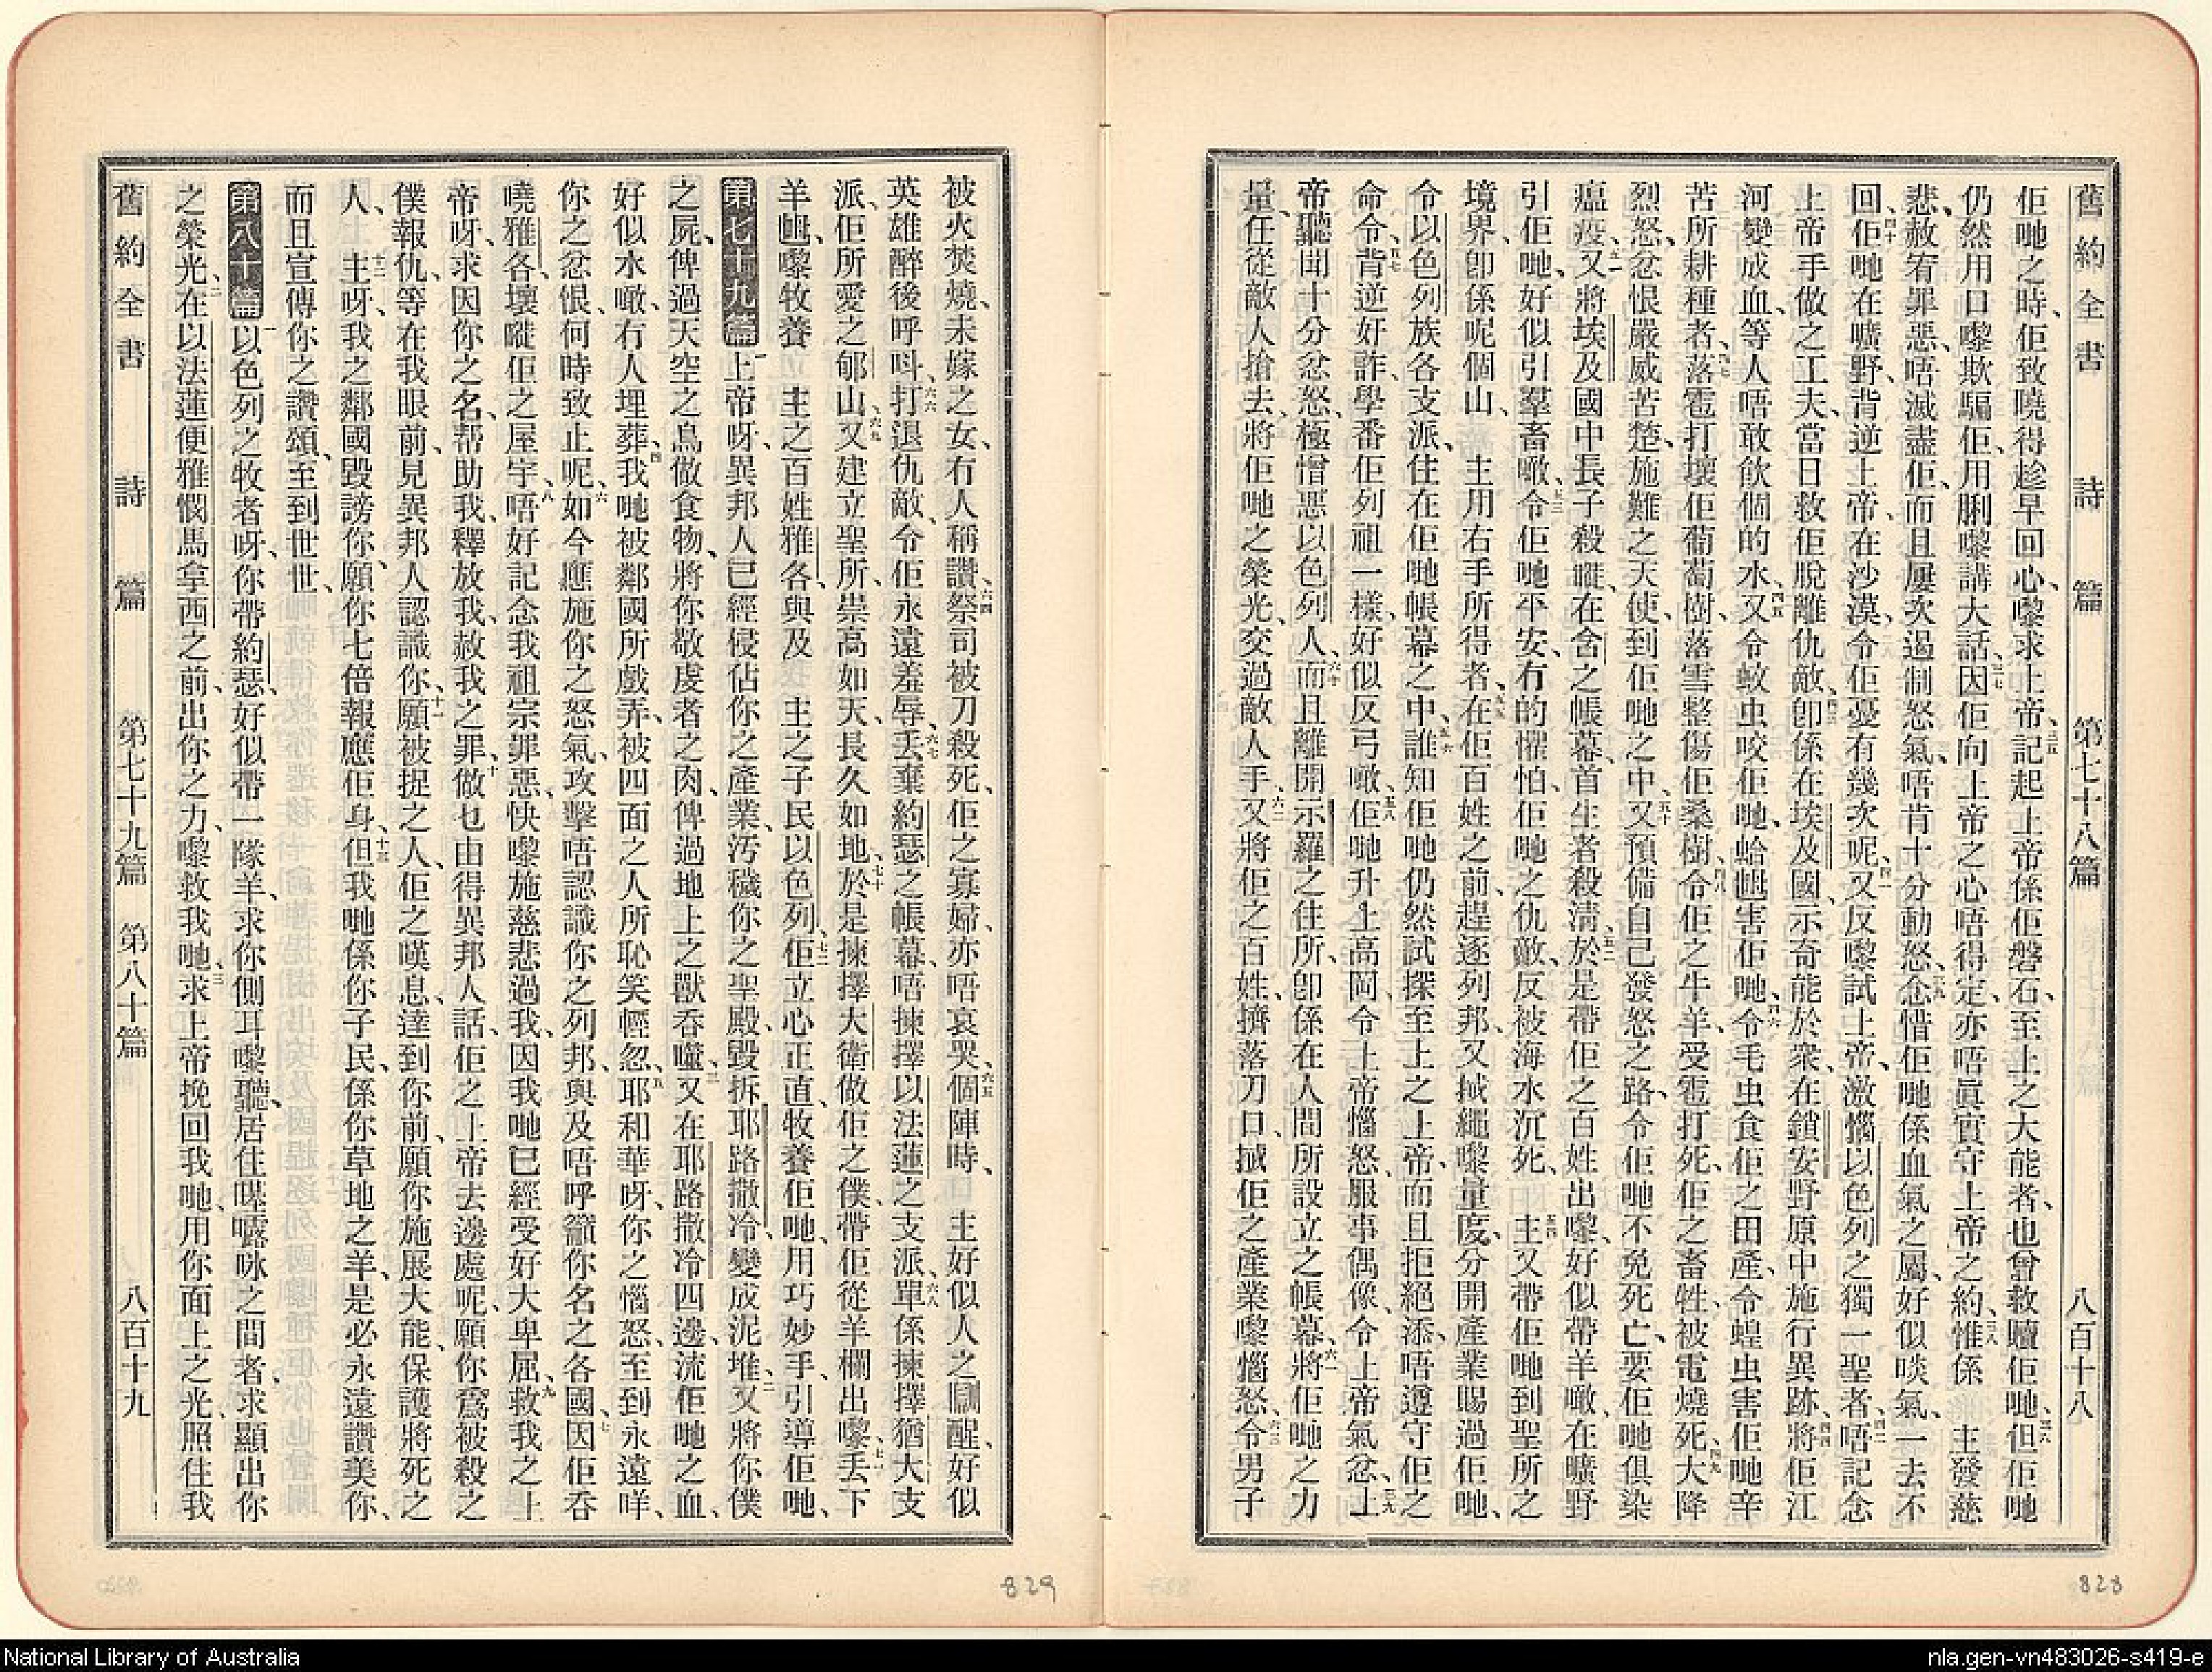 舊約全書 詩 篇 第七十八篇 八百十八
佢哋之時、佢致曉得趁早回心、嚟求上帝、三五記起上帝係佢磐石、至上之大能者、也曾救贖佢哋、三六但佢哋
仍然用口嚟欺騙佢、用脷嚟講大話、三七因佢向上帝之心唔得定、亦唔眞實守上帝之約、三八惟係 主發慈
悲、赦宥罪惡、唔滅盡佢、而且屢次遏制怒氣、唔肯十分動怒、三九念惜佢哋係血氣之屬、好似啖氣、一去不
回、四十佢哋在曠野、背逆上帝、在沙漠、令佢憂有幾次呢、四一又反嚟試上帝、激惱以色列之獨一聖者、四二唔記念
上帝手做之工夫、當日救佢脫離仇敵、四三卽係在埃及國、示奇能於衆、在鎖安野原中施行異跡、四四將佢江
河變成血、等人唔敢飮個的水、四五又令蚊虫咬佢哋、蛤乸害佢哋、四六令毛虫食佢之田產、令蝗虫害佢哋辛
苦所耕種者、四七落雹打壞佢葡萄樹、落雪整傷佢桑樹、四八令佢之牛羊、受雹打死、佢之畜牲、被電燒死、四九大降
烈怒、忿恨嚴威苦楚、施難之天使、到佢哋之中、五十又預備自己發怒之路、令佢哋不免死亡、要佢哋俱染
瘟疫、五一又將埃及國中長子殺嘥、在含之帳幕、首生者殺清、五二於是帶佢之百姓出嚟、好似帶羊噉、在曠野
引佢哋、好似引羣畜噉、五三令佢哋平安、冇的懼怕、佢哋之仇敵、反被海水沉死、五四主又帶佢哋到聖所之
境界、卽係呢個山、 主用右手所得者、五五在佢百姓之前、趕逐列邦、又搣繩嚟量度、分開產業賜過佢哋、
令以色列族各支派、住在佢哋帳幕之中、五六誰知佢哋仍然試探至上之上帝、而且拒絕添、唔遵守佢之
命令、五七背逆奸詐、學番佢列祖一樣、好似反弓噉、五八佢哋升上高岡、令上帝惱怒、服事偶像、令上帝氣忿、五九上
帝聽聞十分忿怒、極憎惡以色列人、六十而且離開示羅之住所、卽係在人間所設立之帳幕、六一將佢哋之力
量、任從敵人搶去、將佢哋之榮光、交過敵人手、六二又將佢之百姓、擠落刀口、搣佢之產業嚟惱怒、六三令男子
828
被火焚燒、未嫁之女、冇人稱讚、六四祭司被刀殺死、佢之寡婦、亦唔哀哭、六五個陣時、 主好似人之瞓醒、好似
英雄醉後呼呌、六六打退仇敵、令佢永遠羞辱、六七丢棄約瑟之帳幕、唔揀擇以法蓮之支派、六八單係揀擇猶大支
派、佢所愛之郇山、六九又建立聖所、崇高如天、長久如地、七十於是揀擇大衛做佢之僕、帶佢從羊欄出嚟、七一丢下
羊乸、嚟牧養 主之百姓雅各、與及 主之子民以色列、七二佢立心正直、牧養佢哋、用巧妙手、引導佢哋、
第七十九篇 一上帝呀、異邦人已經侵佔你之產業、汚穢你之聖殿、毀拆耶路撒冷、變成泥堆、二又將你僕
之屍、俾過天空之鳥做食物、將你敬虔者之肉、俾過地上之獸吞噬、三又在耶路撒冷四邊、流佢哋之血、
好似水噉、冇人埋葬、四我哋被鄰國所戲弄、被四面之人所恥笑輕忽、五耶和華呀、你之惱怒、至到永遠咩、
你之忿恨、何時致止呢、六如今應施你之怒氣、攻擊唔認識你之列邦、與及唔呼籲你名之各國、七因佢吞
曉雅各、壞嘥佢之屋宇、八唔好記念我祖宗罪惡、快嚟施慈悲過我、因我哋已經受好大卑屈、九救我之上
帝呀、求因你之名、帮助我、釋放我、赦我之罪、十做乜由得異邦人話、佢之上帝去邊處呢、願你爲被殺之
僕報仇、等在我眼前、見異邦人認識你、十一願被捉之人、佢之嘆息、達到你前、願你施展大能、保護將死之
人、十二主呀、我之鄰國毀謗你、願你七倍報應佢身、十三但我哋係你子民、係你草地之羊、是必永遠讚美你、
而且宣傳你之讚頌、至到世世、
第八十篇 一以色列之牧者呀、你帶約瑟、好似帶一隊羊、求你側耳嚟聽、居住𠼻𡃤咏之間者、求顯出你
之榮光、二在以法蓮便雅憫馬拿西之前、出你之力、嚟救我哋、三求上帝挽回我哋、用你面上之光、照住我
舊約全書 詩 篇 第七十九篇 第八十篇 八百十九
829
National Library of Australia
nla.gen-vn483026-s419-e